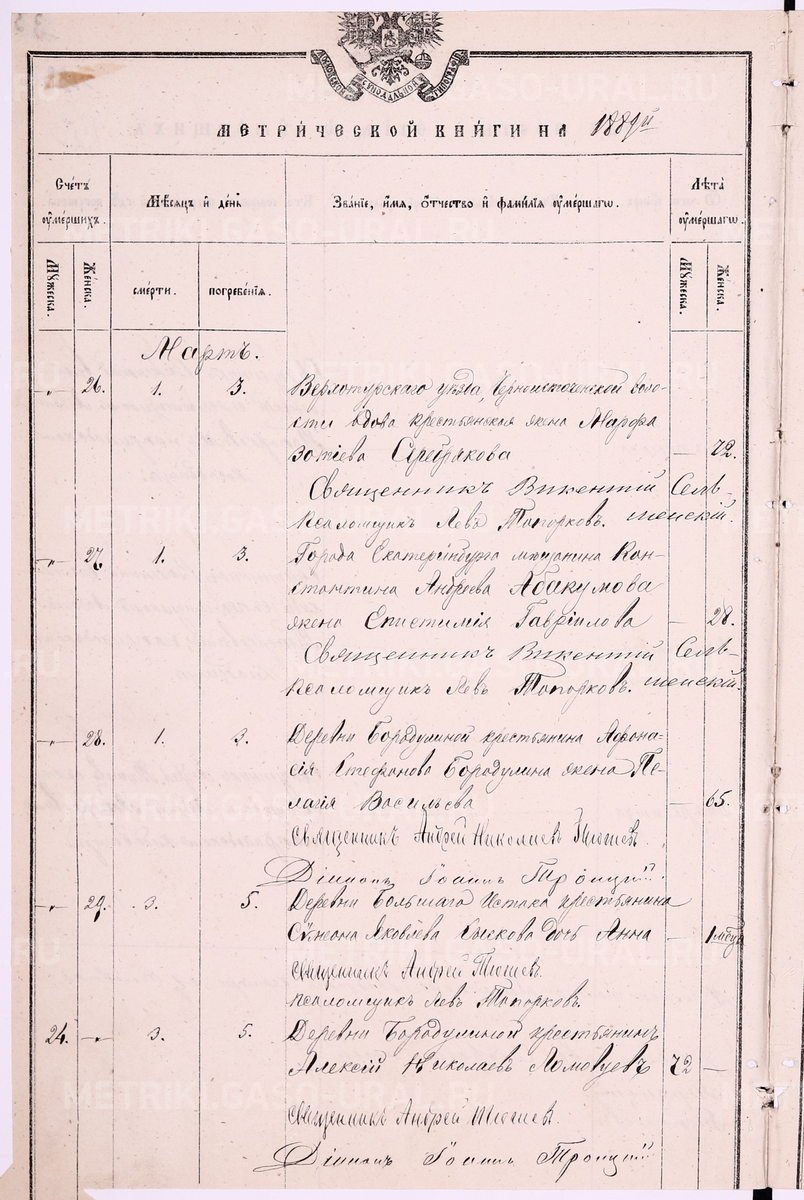 МОСКОВСКОЙ СѴНОДАЛЬНОЙ ТИПОГРАФІИ
МЕТРИ́ЧЕСКОЙ КНИ́ГИ НА 1889й
Сче́тъ ᲂу҆ме́ршихъ.
Мѣ́сѧцъ и҆ де́нь
Зва́нїе, и҆́мѧ, ѻ҆́тчество и҆ фами́лїѧ ᲂу҆ме́ршагѡ.
Лѣ́та ᲂу҆ме́ршагѡ.
Мꙋ́жеска.
Же́нска.
сме́рти.
погребе́нїѧ.
Мꙋ́жеска.
Же́нска.
Мартъ.
„ 26. 1. 3. Верхотурскаго уѣзда, Черноисточенской воло-
сти вдова крестьянская жена Марфа
Зотіева Серебрякова — 72.
Священникъ Викентій Селв-
Псаломщикъ Левъ Топорковъ.
„ 27. 1. 3. Города Екатеринбурга мѣщанина Кон-
стантина Андреева Абакумова
жена Епистимія Гавріилова — 28.
Священникъ Викентій Селв-
Псаломщикъ Левъ Топорковъ.
„ 28. 1. 3. Деревни Бородулиной крестьянина Афона-
сія Стефанова Бородулина жена Пе-
лагія Васильева — 65.
Священникъ Андрей Николаевъ
Діаконъ Іоаннъ Троицкій
„ 29. 3. 5. Деревни Большаго Истока крестьянина
Сѵмеона Яковлева дочь Анна — 1 мѣсц
Священникъ Андрей
Псаломщикъ Левъ Топорковъ.
24. „ 3. 5. Деревни Бородулиной крестьянинъ
Алексій Николаевъ 72 —
Священникъ Андрей
Діаконъ Іоаннъ Троицкій
METRIKI.GASO-URAL.RU